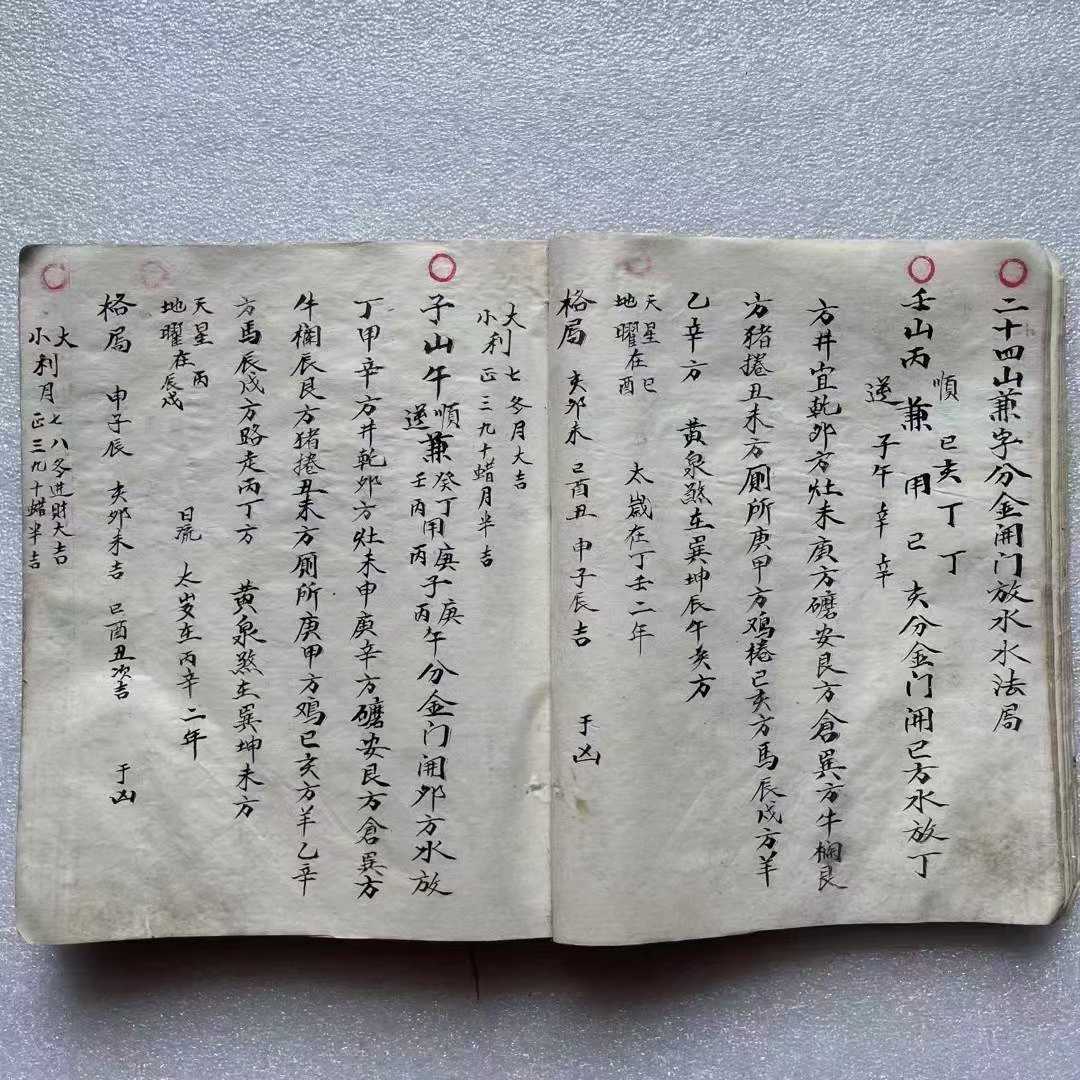 二十四山兼字分金開门放水水法局
壬山丙兼 順 巳亥 丁丁 逆 子午 辛辛 用 己亥分金门開巳方水放丁
方井宜乾夘方灶未庚方礳安艮方倉巽方牛欄艮
方猪捲丑未方厕所庚甲方鸡棬巳亥方馬辰戌方羊
乙辛方 黄泉煞在巽坤辰午亥方
天星巳 地曜在酉 太歲在丁壬二年
格局 亥夘未 巳酉丑 申子辰吉 于凶
大利七冬月大吉
小利正三九十蜡月半吉
子山午兼 順癸丁 逆壬丙 用 庚子庚午 丙丙 分金门開夘方水放
丁甲辛方井乾夘方灶未申庚辛方礳安艮方倉巽方
牛欄辰艮方猪捲丑未方厕所庚甲方鸡巳亥方羊乙辛
方馬辰戌方路走丙丁方 黄泉煞在巽坤未方
天星丙 地曜在辰戌 日流 太岁在丙辛二年
格局 申子辰 亥夘未吉 巳酉丑次吉 于凶
大利月七八冬进財大吉
小利月正三九十蜡半吉